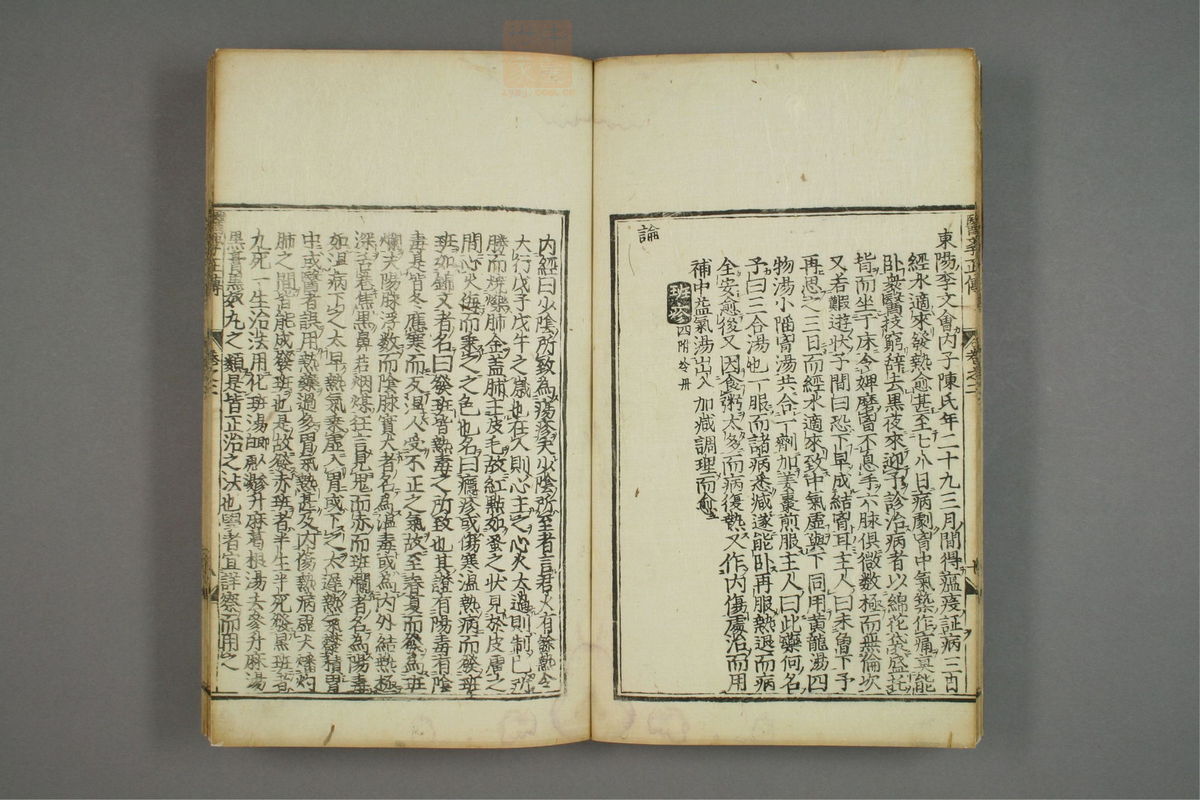 醫學正傳　卷之二
東陽李文會內子陳氏年二十九三月間得瘟疫証病三日
經水適來發熱愈甚至七八日病劇胷中氣築作痛莫能
臥衆醫技窮辭去黑夜來迎予診治病者以綿花袋盛托
背而坐于床令婢磨胷不息手六脉俱微數極而無倫次
又若蝦遊狀予問曰恐下早成結胷耳主人曰未曾下予
再思之三日而經水適來致中氣虛與下同用黃龍湯四
物湯小陷胷湯共合一劑加姜棗煎服主人曰此藥何名
予曰三合湯也一服而諸病悉減遂能臥再服熱退而病
全安愈後又因食粥太多而病復熱又作內傷處治而用
補中益氣湯出入加減調理而愈
班疹
論
內經曰少陰所致為瘍疹夫少陰所至者言君火有餘熱令
大行戊子戊午之歲也在人則心主之心火太過則制己所
勝而燒爍肺金蓋肺主皮毛故紅點如蚤之狀見於皮膚之
間心火侮而乘之之色也名曰癮疹或傷寒溫熱病而發班
班如錦文者名曰發班皆熱毒之所致也其證有陽毒有陰
毒其皆冬應寒而反溫人受不正之氣故至春夏而發為班
爛夫陽脉浮數而陰脉實大者名為溫毒或為內外結熱極
深舌卷焦黑鼻若烟煤狂言見鬼面赤而班爛者名為陽毒
如溫病下之太早熱氣乘虛入胃或下之太遲熱留胃
中或醫者誤用熱藥過多胃氣熱甚及內傷熱病虛火燔灼
肺之間皆能成發班也是故發赤班者半生半死發黑班者
九死一生治法用化班湯升麻葛根湯去參升麻湯
黑膏黑奴丸之類是皆正治之法也學者宜詳察而用之
醫學正傳　卷之二